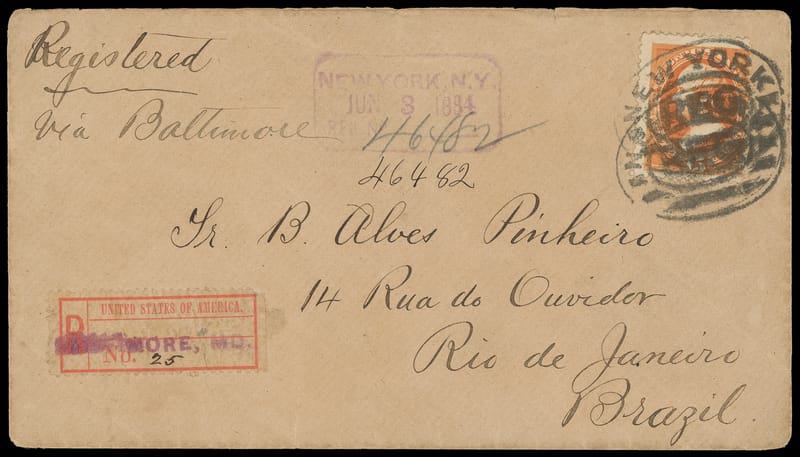 Registered
via Baltimore
NEW YORK, N.Y.
JUN 3 1884
46482
46482
NEW YORK
REG
Sr. B. Alves Pinheiro
14 Rua do Ouvidor
Rio de Janeiro
Brazil.
UNITED STATES OF AMERICA.
R
MORE, MD.
No. 25